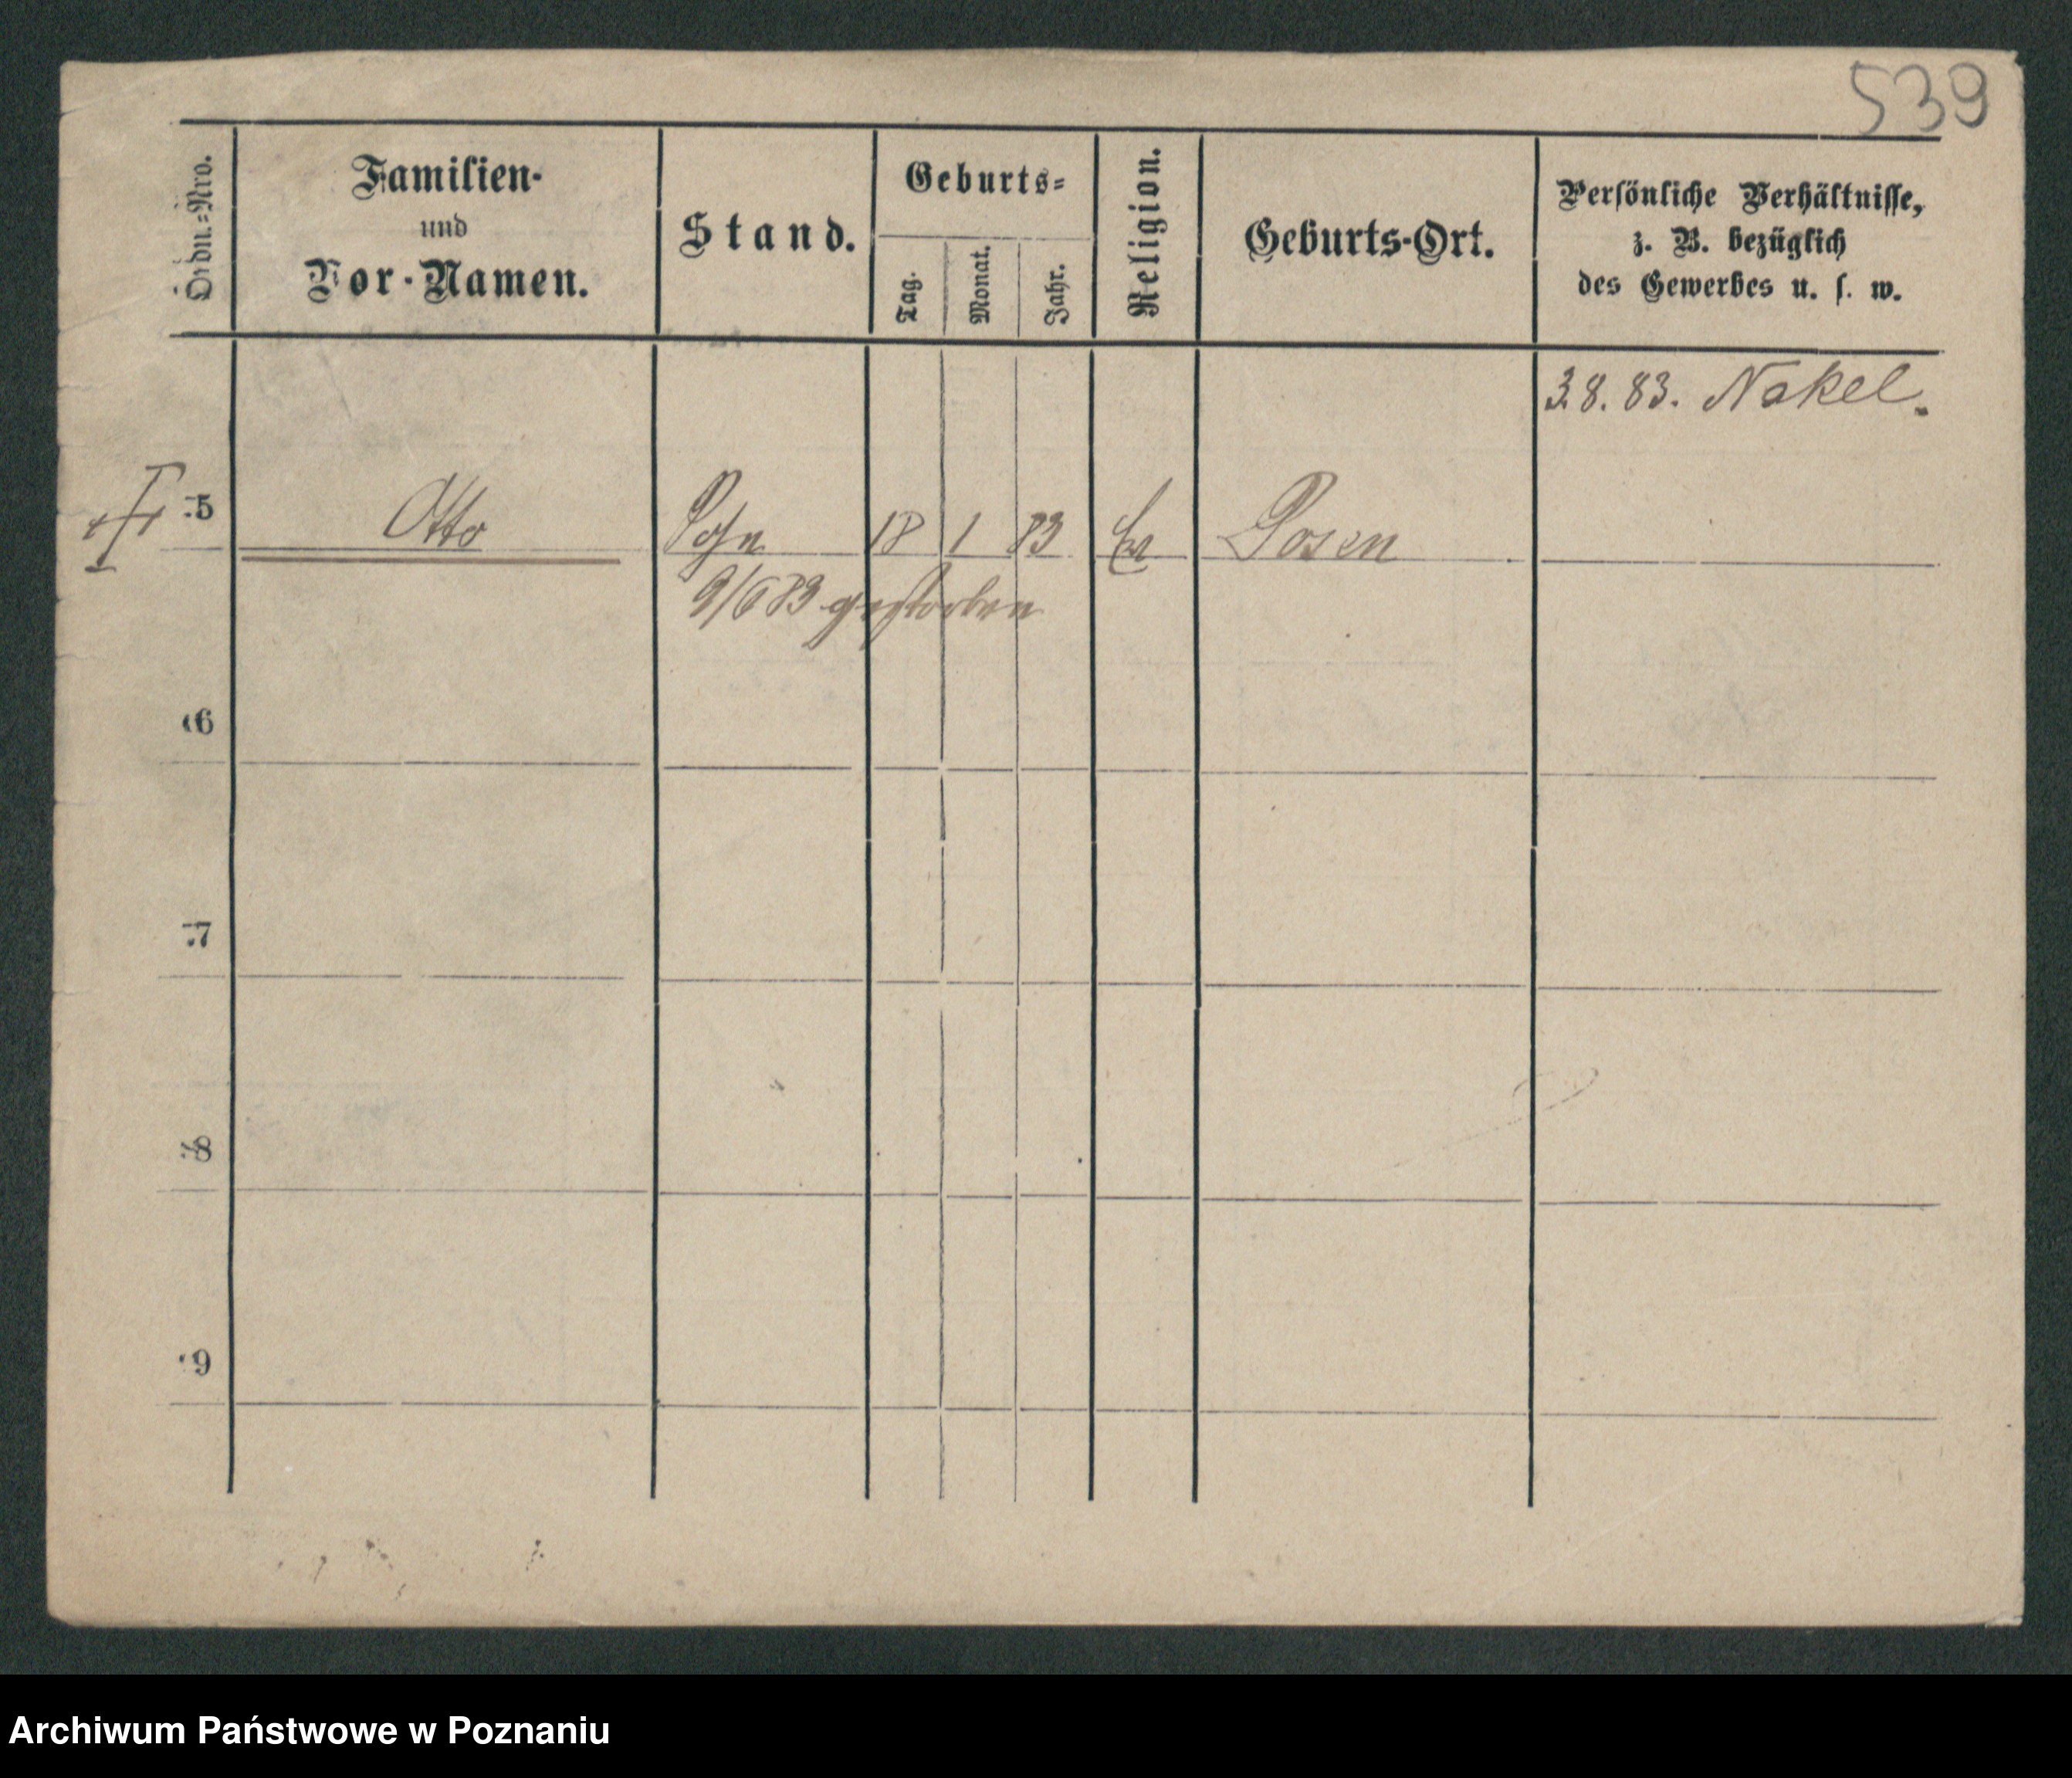 539
Ordn.=Nro.
Familien-
und
Vor-Namen.
Stand.
Geburts=
Tag.
Monat.
Jahr.
Religion.
Geburts-Ort.
Persönliche Verhältnisse,
z. B. bezüglich
des Gewerbes u. s. w.
3.8.83. Nakel.
5 Otto Sohn 18 1 83 Ev Posen
9/6 83 gestorben
6
7
8
9
Archiwum Państwowe w Poznaniu